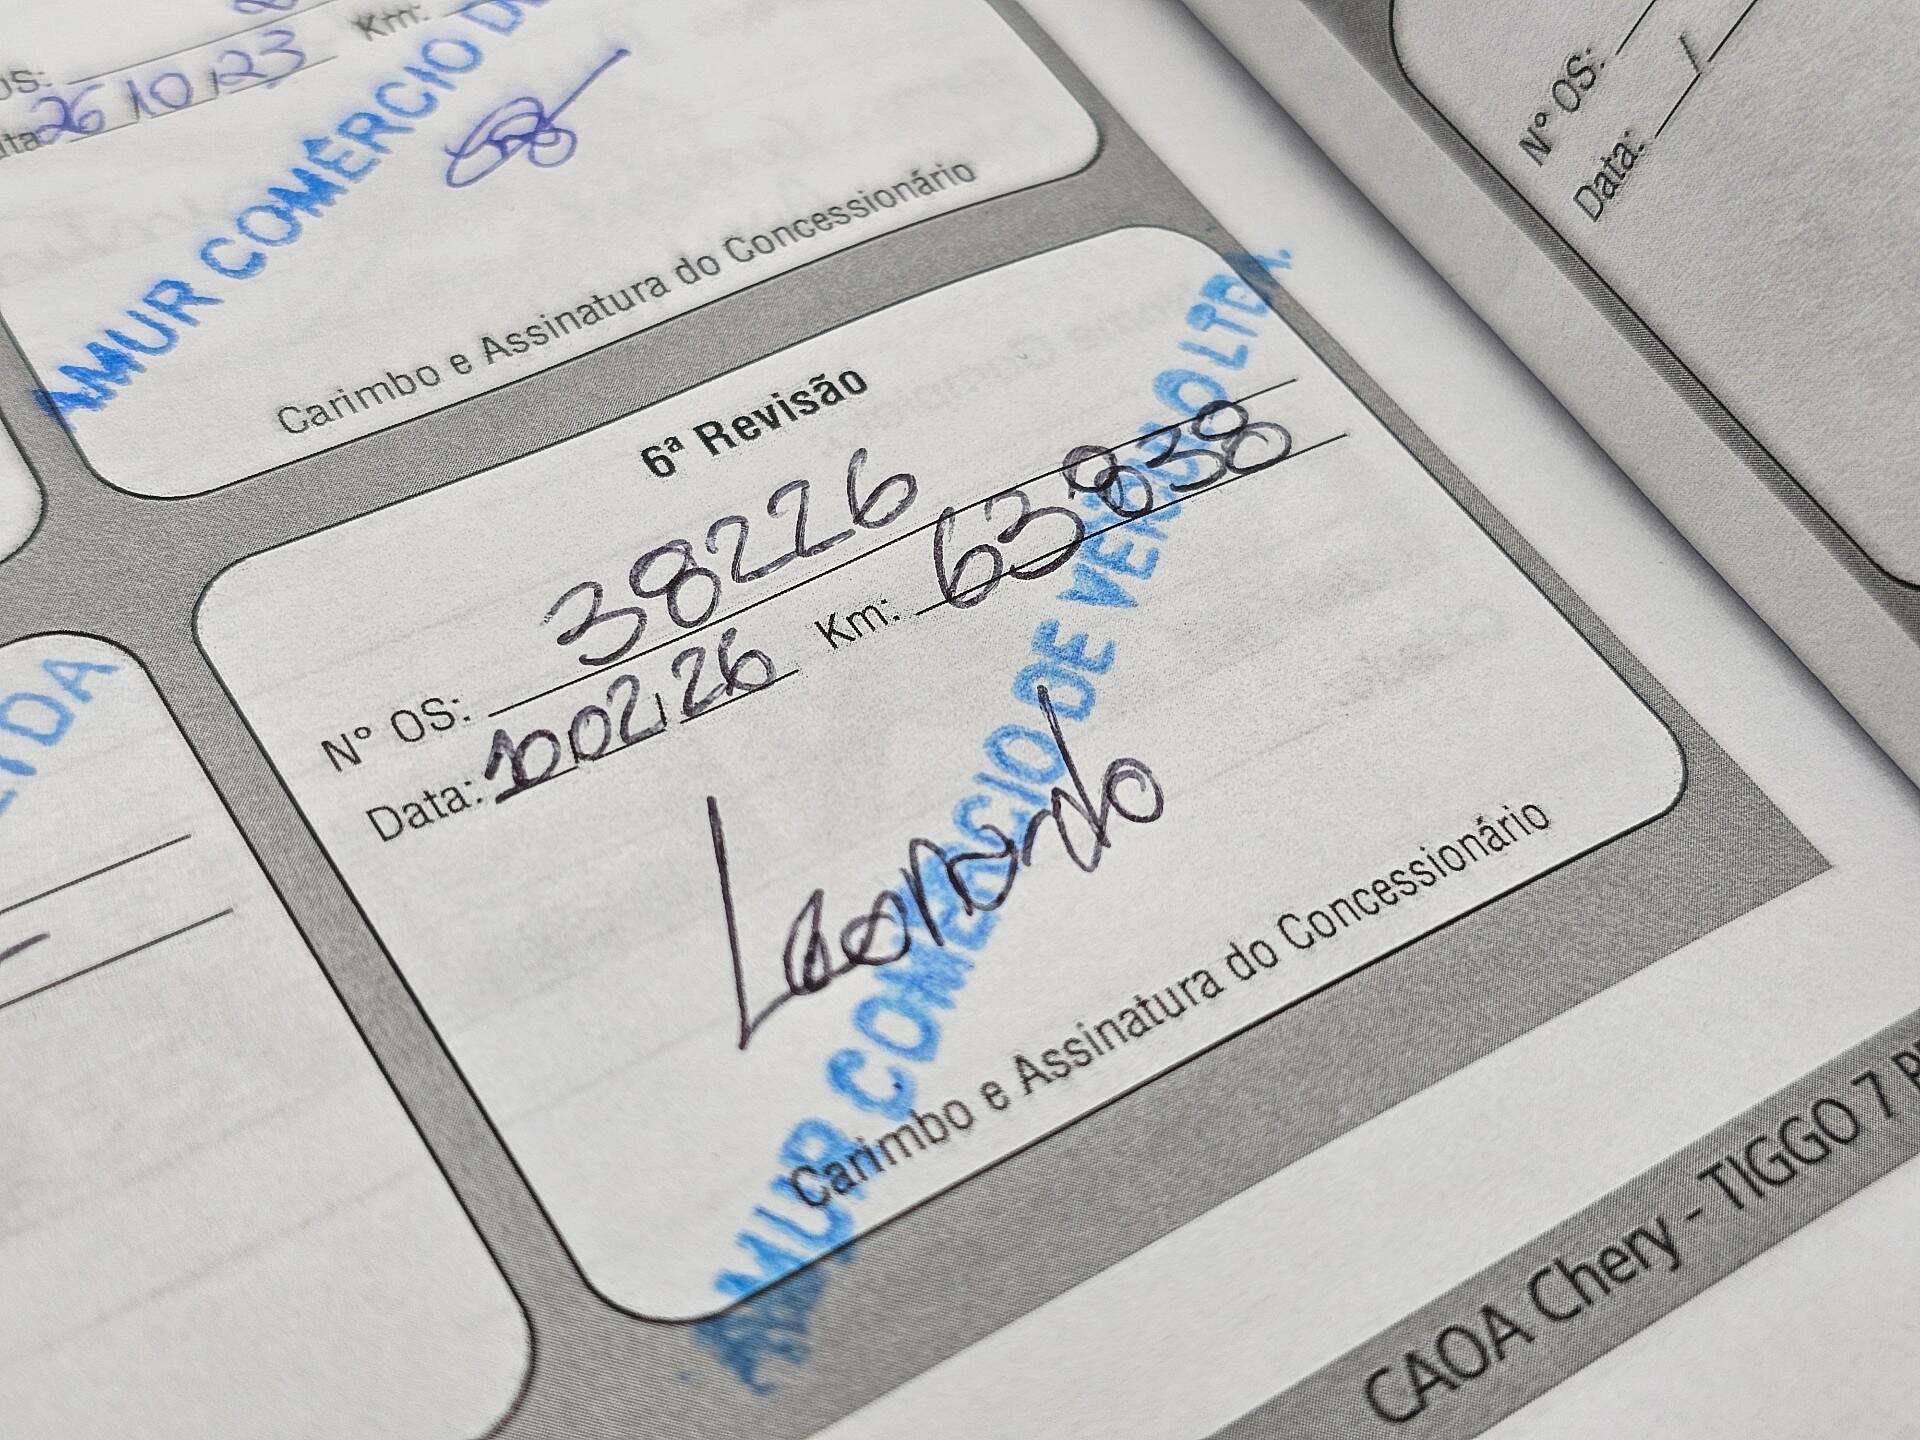 OS:
Km:
Data: 26/10/23
AMUR COMÉRCIO DE
Carimbo e Assinatura do Concessionário
6ª Revisão
Nº OS: 38226
Data: 10/02/26 Km: 63838
Leonardo
AMUR COMÉRCIO DE VEÍCULO LTDA.
Carimbo e Assinatura do Concessionário
LTDA
Nº OS:
Data: /
CAOA Chery - TIGGO 7